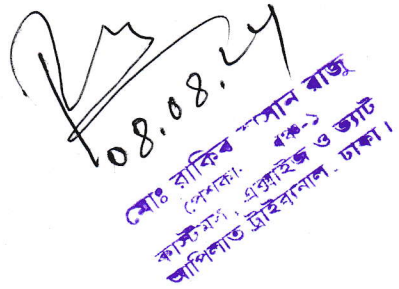 08.08.24
মোঃ রাকিব হাসান রাজু
পেশকার বেঞ্চ-১
কাস্টমস, এক্সাইজ ও ভ্যাট
আপিলাত ট্রাইব্যুনাল, ঢাকা।